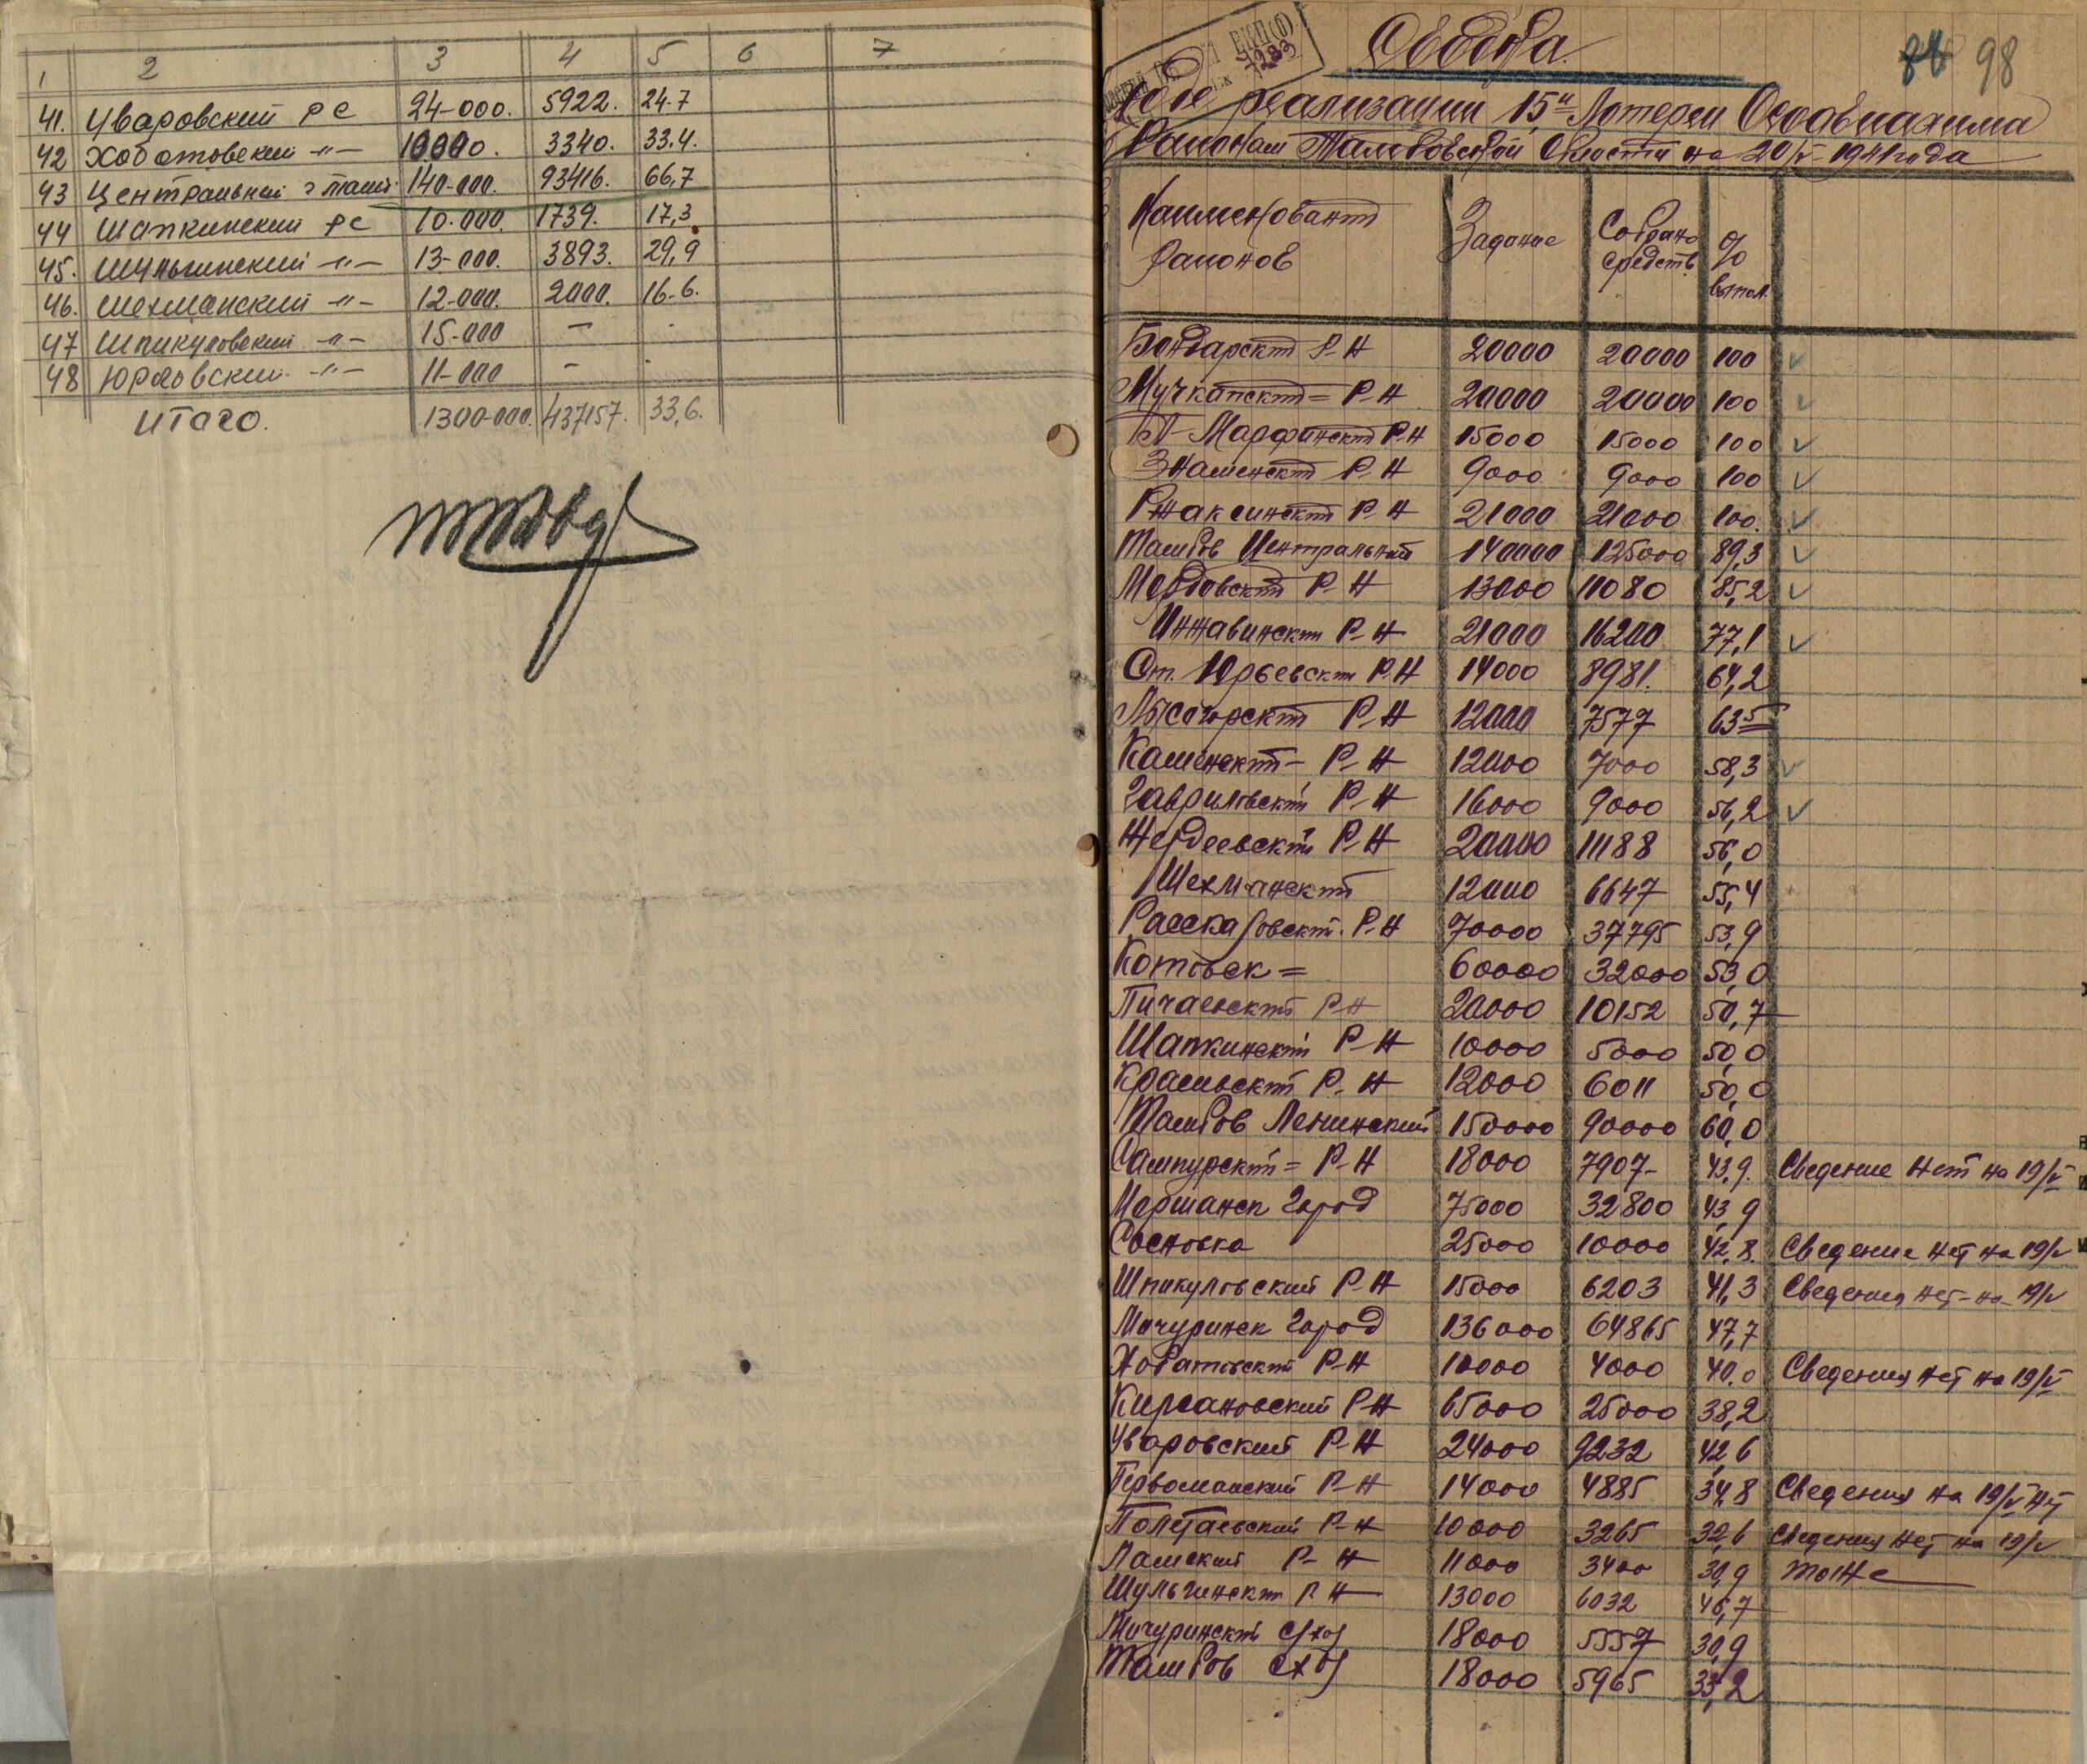 1 2 3 4 5 6 7
41. Уваровский РС 24-000. 5922. 24.7
42 Хоботовский -"- 10000. 3340. 33.4.
43 Центральный г Тамб. 140-000. 93416. 66,7
44 Шапкинский РС 10.000. 1739. 17,3
45. Шульгинский -"- 13-000. 3893. 29,9
46. Шехманский -"- 12-000. 2000. 16-6.
47 Шпикуловский -"- 15-000 - -
48 Юрловский -"- 11-000 - -
Итого. 1300-000. 437157. 33,6.
98
Сводка.
Ходе реализации 15й Лотереи Осоавиахима
Районам Тамбовской Области на 20/V-1941 года
Наименование Районов Задание Собрано средств % выпол.
Бондарский Р-Н 20000 20000 100
Мучкапский = Р-Н 20000 20000 100
П-Марфинский Р-Н 15000 15000 100
Знаменский Р-Н 9000 9000 100
Ржаксинский Р-Н 21000 21000 100.
Тамбов Центральный 140000 125000 89,3
Мордовский Р-Н 13000 11080 85,2
Инжавинский Р-Н 21000 16200 77,1
Ст. Юрьевский Р.Н 14000 8981. 64,2
Лысогорский Р-Н 12000 7577 63 5
Каменский - Р-Н 12000 7000 58,3
Гавриловский Р-Н 16000 9000 56,2
Жердеевский Р-Н 20000 11188 56,0
Шехманский 12000 6647 55,4
Рассказовский. Р-Н 70000 37795 53,9
Котовск = 60000 32000 53,0
Пичаевский Р-Н 20000 10152 50,7
Шапкинский Р-Н 10000 5000 50,0
Храмовский Р-Н 12000 6011 50,0
Тамбов Ленинский 150000 90000 60,0
Сампурский = Р-Н 18000 7907- 43,9. Сведение Нет на 19/V
Моршанск Город 75000 32800 43,9
Сосновка 25000 10000 42,8. Сведение нет на 19/V
Шпикуловский Р-Н 15000 6203 41,3 Сведения нет-на 19/V
Мичуринск Город 136000 64865 47,7
Хоботовский Р-Н 10000 4000 40,0 Сведения нет на 19/V
Кирсановский Р-Н 65000 25000 38,2
Уваровский Р-Н 24000 9232 42,6
Первомайский Р-Н 14000 4885 34,8 Сведения на 19/V нет
Полетаевский Р-Н 10000 3265 32,6 Сведения нет на 19/V
Ламский Р-Н 11000 3400 30,9 тоже
Шульгинский Р-Н 13000 6032 46,7
Мичуринский 18000 5557 30,9
Тамбов 18000 5965 33,2